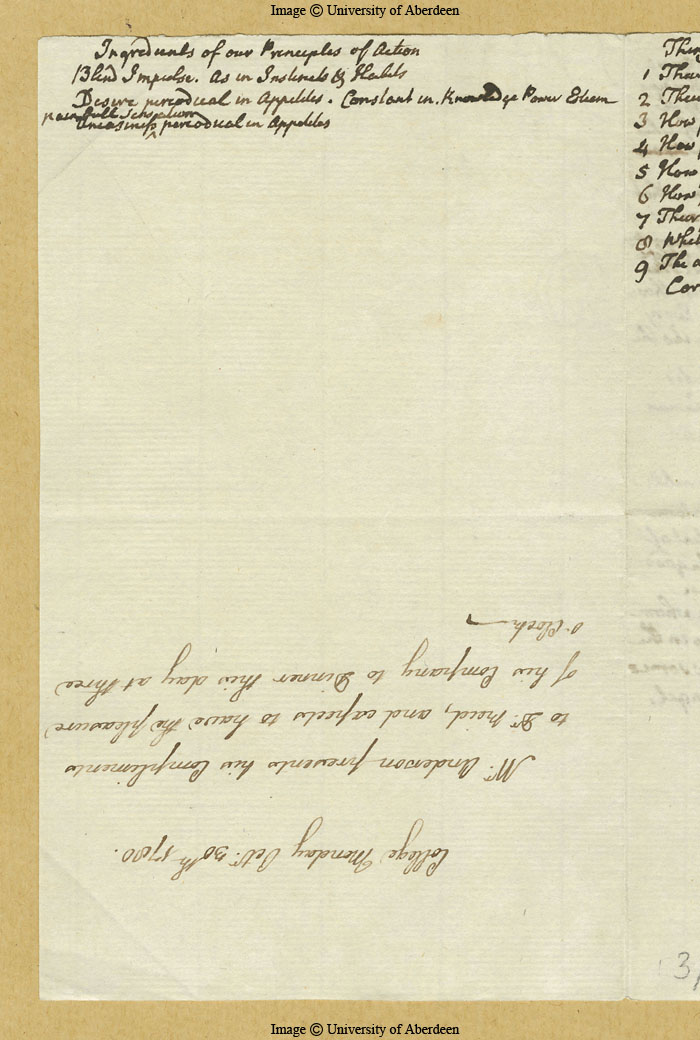 Image © University of Aberdeen
Ingredients of our Principles of Action
Blind Impulse. As in Instincts & Habits
Desire periodical in Appetites. Constant in. Knowledge Power Esteem
painfull Sensation
Uneasiness ^ periodical in Appetites
1
2
3 How
4 How
5 How
6 How
7
8
9 The
College Monday Octr. 30th 1780.
Mr. Anderson presents his Compliments
to Dr. Reid, and expects to have the pleasure
of his Company to Dinner this day at three
o'Clock
3
Image © University of Aberdeen